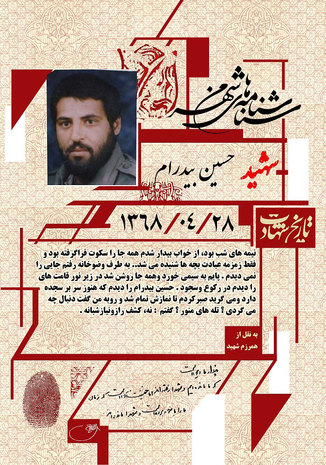 شناسنامه های شهر من
شهید حسین بیدرام
تاریخ شهادت
۱۳۶۸/۰۴/۲۸
نیمه های شب بود، از خواب بیدار شدم همه جا را سکوت فراگرفته بود و
فقط زمزمه عبادت بچه ها شنیده می شد.. به طرف وضوخانه رفتم جایی را
نمی دیدم . پایم به سیمی خورد و همه جا روشن شد در زیر نور قامت های
را دیدم در رکوع وسجود . حسین بیدرام را دیدم که هنوز سر بر سجده
دارد ومی گرید صبر کردم تا نمازش تمام شد و رو به من گفت دنبال چه
می گردی ؟ تله های منور ؟ گفتم : نه، کشف رازونیازشبانه .
به نقل از
همرزم شهید